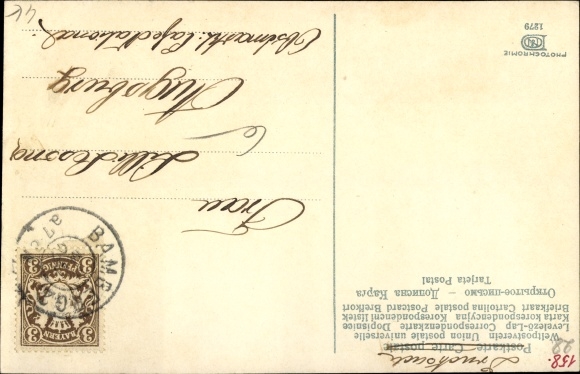 Drucksache
Postkarte Carte postale
Weltpostverein Union postale universelle
Levelező-Lap Correspondenzkarte Dopisnice
Karta korespondencyjna Korespondenční lístek
Briefkaart Cartolina postale Postcard Brefkort
Открытое-письмо – Дописна Карта
Tarjeta Postal
158.
BAYERN
3
PFENNIG
BAMB
Frau
Lilli
Augsburg
PHOTOCHROMIE
1279